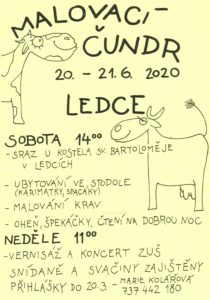 MALOVACÍ-
ČUNDR
20. - 21.6. 2020
LEDCE
SOBOTA 14⁰⁰
- SRAZ U KOSTELA SV. BARTOLOMĚJE
V LEDCÍCH
- UBYTOVÁNÍ VE STODOLE
(KARIMATKY, SPACÁKY)
- MALOVÁNÍ KRAV
- OHEŇ, ŠPEKÁČKY, ČTENÍ NA DOBROU NOC
NEDĚLE 11⁰⁰
- VERNISÁŽ A KONCERT ZUŠ
SNÍDANĚ A SVAČINY ZAJIŠTĚNY
PŘIHLÁŠKY DO 20.3 - MARIE KOLÁŘOVÁ
737 442 180